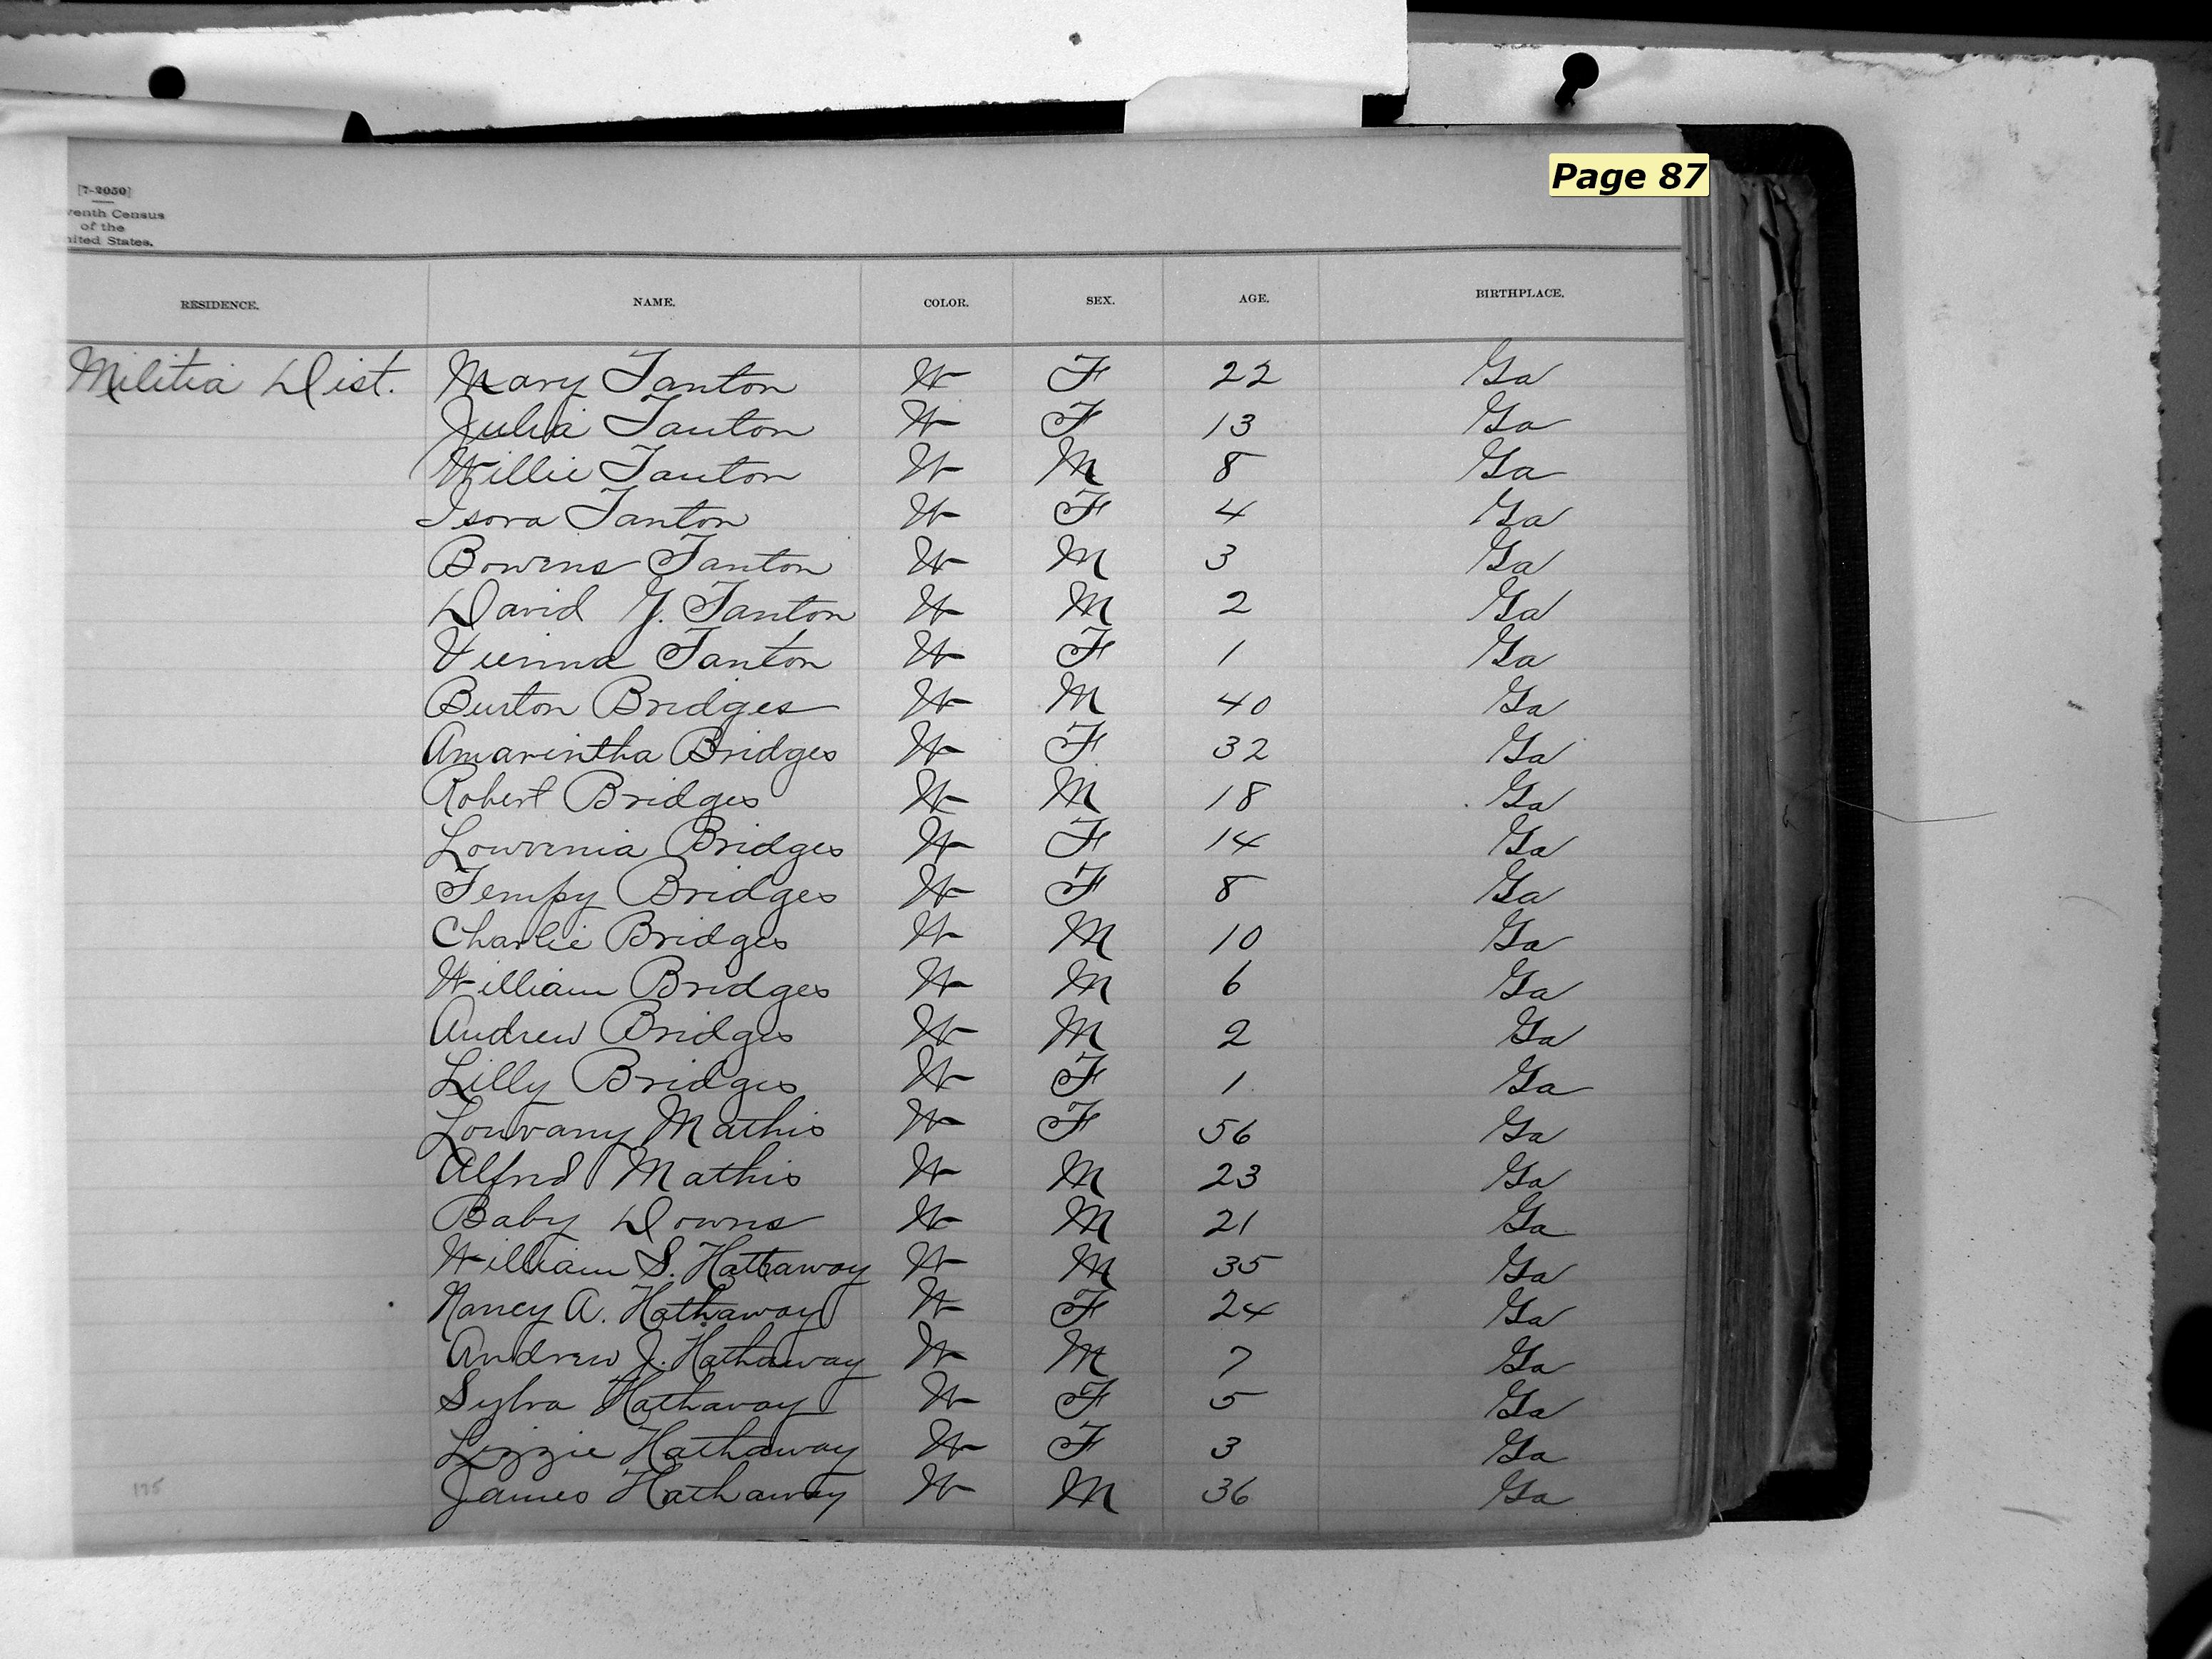 Page 87
[7-2050]
venth Census
of the
nited States.
RESIDENCE. NAME. COLOR. SEX. AGE. BIRTHPLACE.
Militia Dist. Mary Tanton W F 22 Ga
Julia Tanton W F 13 Ga
Willie Tanton W M 8 Ga
Isora Tanton W F 4 Ga
Bowens Tanton W M 3 Ga
David G. Tanton W M 2 Ga
Vienna Tanton W F 1 Ga
Burton Bridges W M 40 Ga
Amarintha Bridges W F 32 Ga
Robert Bridges W M 18 Ga
Louvenia Bridges W F 14 Ga
Tempy Bridges W F 8 Ga
Charlie Bridges W M 10 Ga
William Bridges W M 6 Ga
Andrew Bridges W M 2 Ga
Lilly Bridges W F 1 Ga
Louvany Mathis W F 56 Ga
Alfred Mathis W M 23 Ga
Baby Downs W M 21 Ga
William S. Hathaway W M 35 Ga
Nancy A. Hathaway W F 24 Ga
Andrew J. Hathaway W M 7 Ga
Sylva Hathaway W F 5 Ga
Lizzie Hathaway W F 3 Ga
175 James Hathaway W M 36 Ga